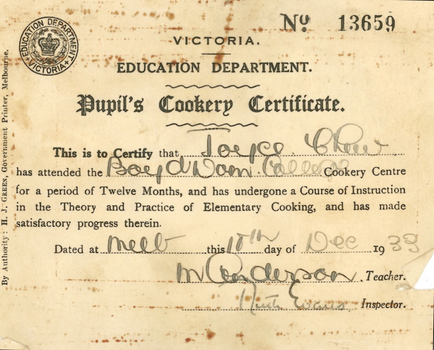 Nº 13659
EDUCATION DEPARTMENT
VICTORIA
VICTORIA.
EDUCATION DEPARTMENT.
Pupil's Cookery Certificate.
This is to Certify that Joyce Chow
has attended the Boyd Dom. College Cookery Centre
for a period of Twelve Months, and has undergone a Course of Instruction
in the Theory and Practice of Elementary Cooking, and has made
satisfactory progress therein.
Dated at Melb this 15th day of Dec 1933
M Anderson Teacher.
Ruth Evans Inspector.
By Authority: H. J. GREEN, Government Printer, Melbourne.